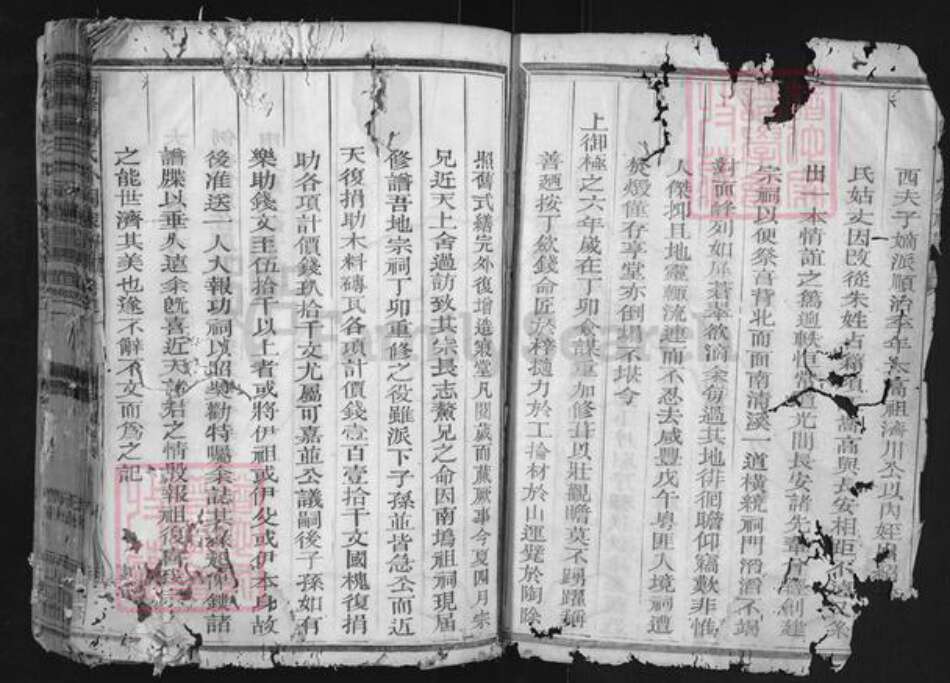 西夫子嫡派順治年年太高祖濟川公以內姪
氏姑丈因改從朱姓占籍嵩高與長安相距不遠又系
出一本情誼之篤道光間長安諸先輩創建
宗祠以便祭享背北而面南清溪一道橫繞祠門滔滔不竭
對面峰列如屏蒼翠欲滴余每過其地徘徊瞻仰竊歎非惟
人傑抑且地靈輒流連而不忍去咸豐戊午粵匪入境祠遭
焚燬僅存享堂亦倒塌不堪今
上御極之六年歲在丁卯僉謀重加修葺以壯觀瞻莫不踴躍稱
善廼按丁斂錢命匠於梓撻力於工掄材於山運甓於陶除
照舊式繕完外復增造寢堂凡閱歲而蕆厥事今夏四月宗
兄近天上舍過訪致其宗長志鰲兄之命因南塢祖祠現屆
修譜吾地宗祠丁卯重修之役雖派下子孫並皆急公而近
天復捐助木料磚瓦各項計價錢壹百壹拾千文國槐復捐
助各項計價錢玖拾千文尤屬可嘉並公議嗣後子孫如有
樂助錢文至伍拾千以上者或將伊祖或伊父或伊本身故
後准送一人入報功祠以昭獎勸特囑余誌其緣起付鐫諸
譜牒以垂久遠余旣喜近天諸君之情殷報祖復
之能世濟其美也遂不辭不文而爲之記